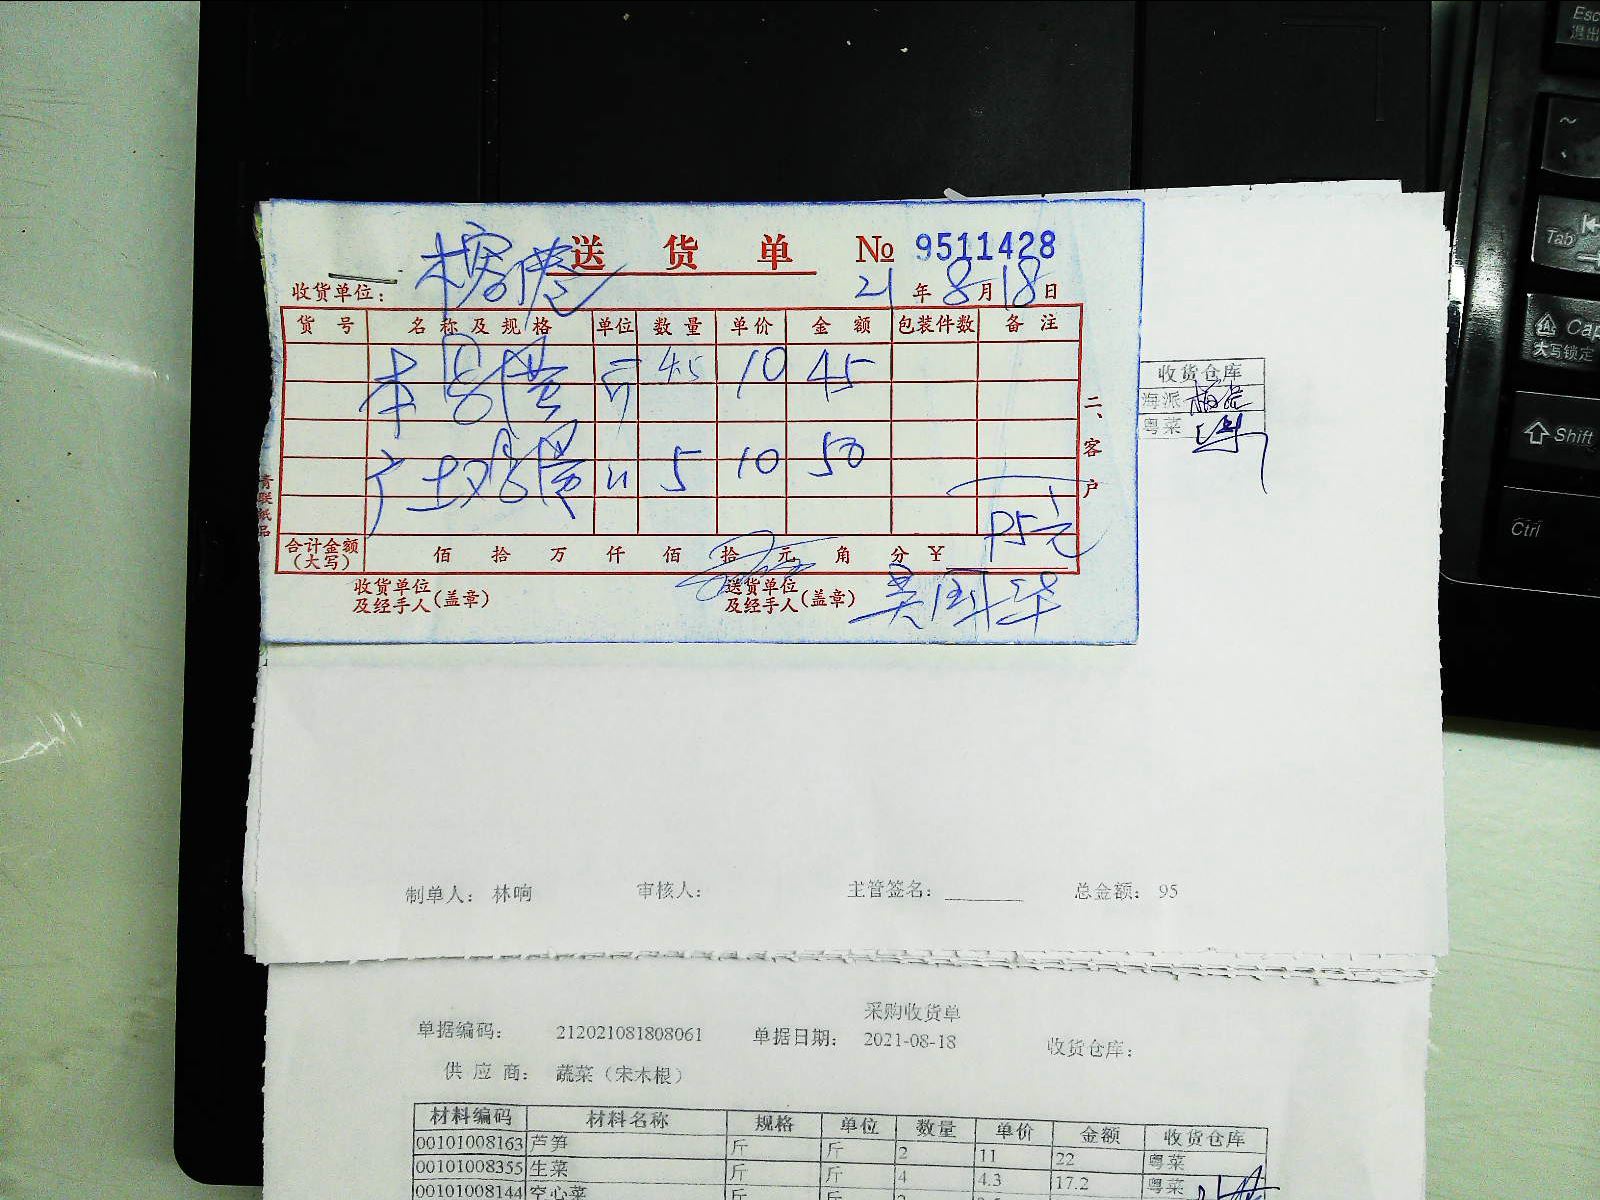 送 货 单 № 9511428
收货单位： 21 年 8 月 18 日
货 号 名 称 及 规 格 单位 数 量 单 价 金 额 包装件数 备 注
4.5 10 45
5 10 50
95元
合计金额（大写） 佰 拾 万 仟 佰 拾 元 角 分 ¥
收货单位及经手人(盖章) 送货单位及经手人(盖章) 吴国华
二、客户
收货仓库
海派
粤菜
制单人： 林响 审核人： 主管签名： 总金额： 95
采购收货单
单据编码： 212021081808061 单据日期： 2021-08-18 收货仓库：
供 应 商： 蔬菜（宋木根）
材料编码 材料名称 规格 单位 数量 单价 金额 收货仓库
00101008163 芦笋 斤 斤 2 11 22 粤菜
00101008355 生菜 斤 斤 4 4.3 17.2 粤菜
00101008144 空心菜 斤 斤
Esc
退出
~
Tab
Cap
大写锁定
Shift
Ctrl